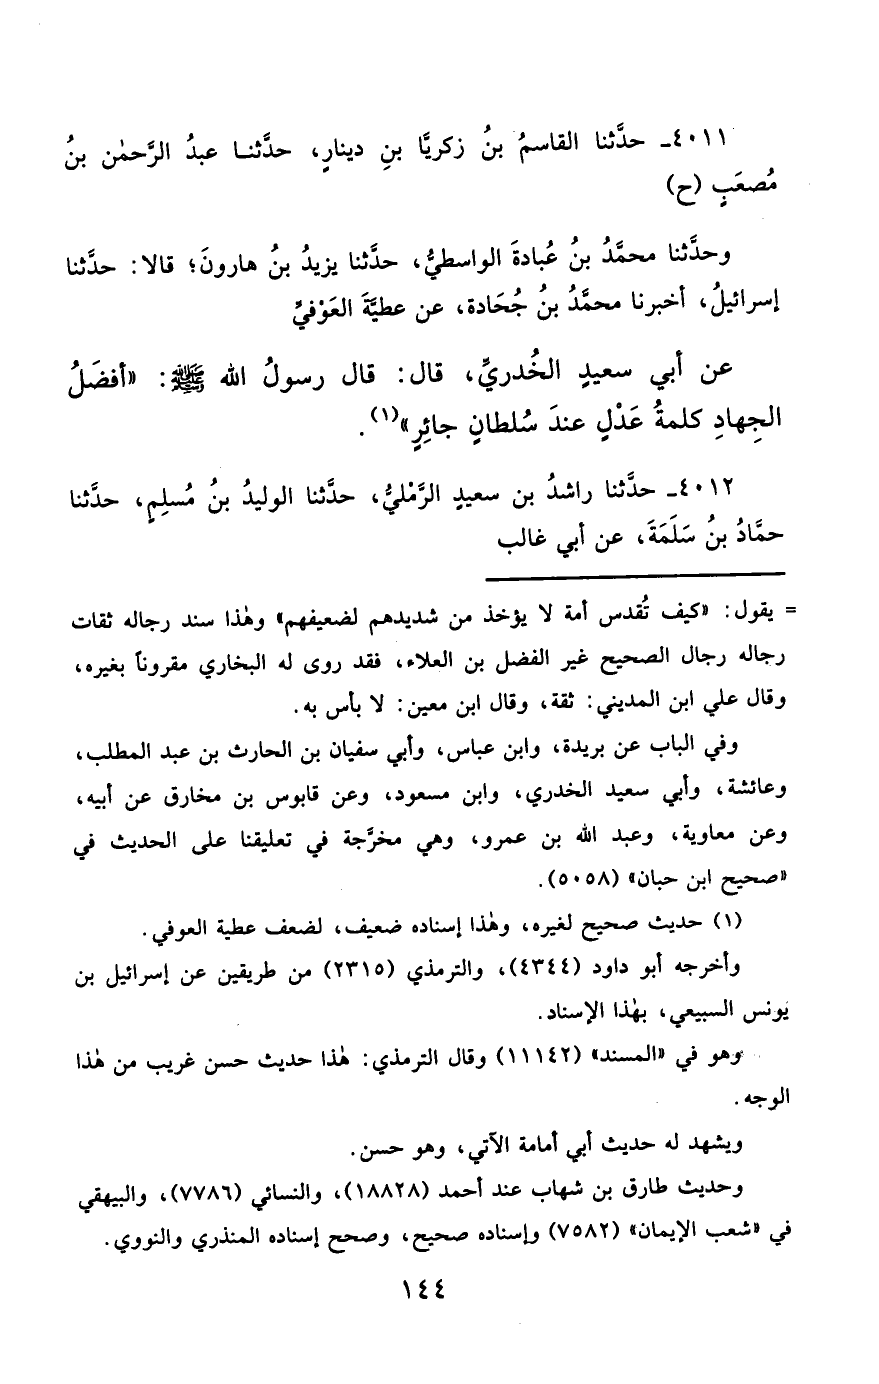 ٤٠١١ـ حدَّثنا القاسمُ بنُ زكريَّا بنِ دينارٍ، حدَّثنـا عبدُ الرَّحمٰن بنُ
مُصعَبٍ (ح)
وحدَّثنا محمَّدُ بنُ عُبادةَ الواسطيُّ، حدَّثنا يزيدُ بنُ هارونَ؛ قالا: حدَّثنا
إسرائيلُ، أخبرنا محمَّدُ بنُ جُحَادة، عن عطيَّةَ العَوْفيِّ
عن أبي سعيدٍ الخُدريِّ، قال: قال رسولُ الله ﷺ: «أفضَلُ
الجِهادِ كلمةُ عَدْلٍ عندَ سُلطانٍ جائِرٍ»(١).
٤٠١٢ـ حدَّثنا راشدُ بن سعيدٍ الرَّمْليُّ، حدَّثنا الوليدُ بنُ مُسلِمٍ، حدَّثنا
حمَّادُ بنُ سَلَمَةَ، عن أبي غالب
= يقول: «كيف تُقدس أمة لا يؤخذ من شديدهم لضعيفهم» وهٰذا سند رجاله ثقات
رجاله رجال الصحيح غير الفضل بن العلاء، فقد روى له البخاري مقروناً بغيره،
وقال علي ابن المديني: ثقة، وقال ابن معين: لا بأس به.
وفي الباب عن بريدة، وابن عباس، وأبي سفيان بن الحارث بن عبد المطلب،
وعائشة، وأبي سعيد الخدري، وابن مسعود، وعن قابوس بن مخارق عن أبيه،
وعن معاوية، وعبد الله بن عمرو، وهي مخرَّجة في تعليقنا على الحديث في
«صحيح ابن حبان» (٥٠٥٨).
(١) حديث صحيح لغيره، وهٰذا إسناده ضعيف، لضعف عطية العوفي.
وأخرجه أبو داود (٤٣٤٤)، والترمذي (٢٣١٥) من طريقين عن إسرائيل بن
يونس السبيعي، بهٰذا الإسناد.
وهو في «المسند» (١١١٤٢) وقال الترمذي: هٰذا حديث حسن غريب من هٰذا
الوجه.
ويشهد له حديث أبي أمامة الآتي، وهو حسن.
وحديث طارق بن شهاب عند أحمد (١٨٨٢٨)، والنسائي (٧٧٨٦)، والبيهقي
في «شعب الإيمان» (٧٥٨٢) وإسناده صحيح، وصحح إسناده المنذري والنووي.
١٤٤